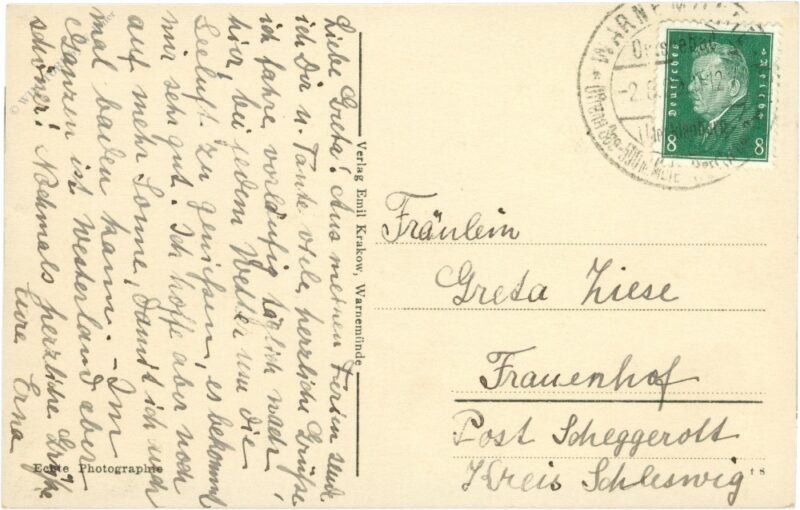 Liebe Greta! Aus meinen Ferien sende
ich Dir u. Tante viele herzliche Grüße
ich fahre vorläufig täglich nach
hier, bei jedem Wetter um die
Seeluft zu genießen, es bekommt
mir sehr gut. Ich hoffe aber noch
auf mehr Sonne, damit ich noch
mal baden kann. - Im
Ganzen ist Westerland aber
schöner! Nochmals herzliche Grüße
Eure Erna
Echte Photographie
Verlag Emil Krakow, Warnemünde
WARNEMÜNDE
Ostseebad
-2.8.
Deutsches Reich
8 8
Fräulein
Greta Ziese
Frauenhof
Post Scheggerott
Kreis Schleswig
18